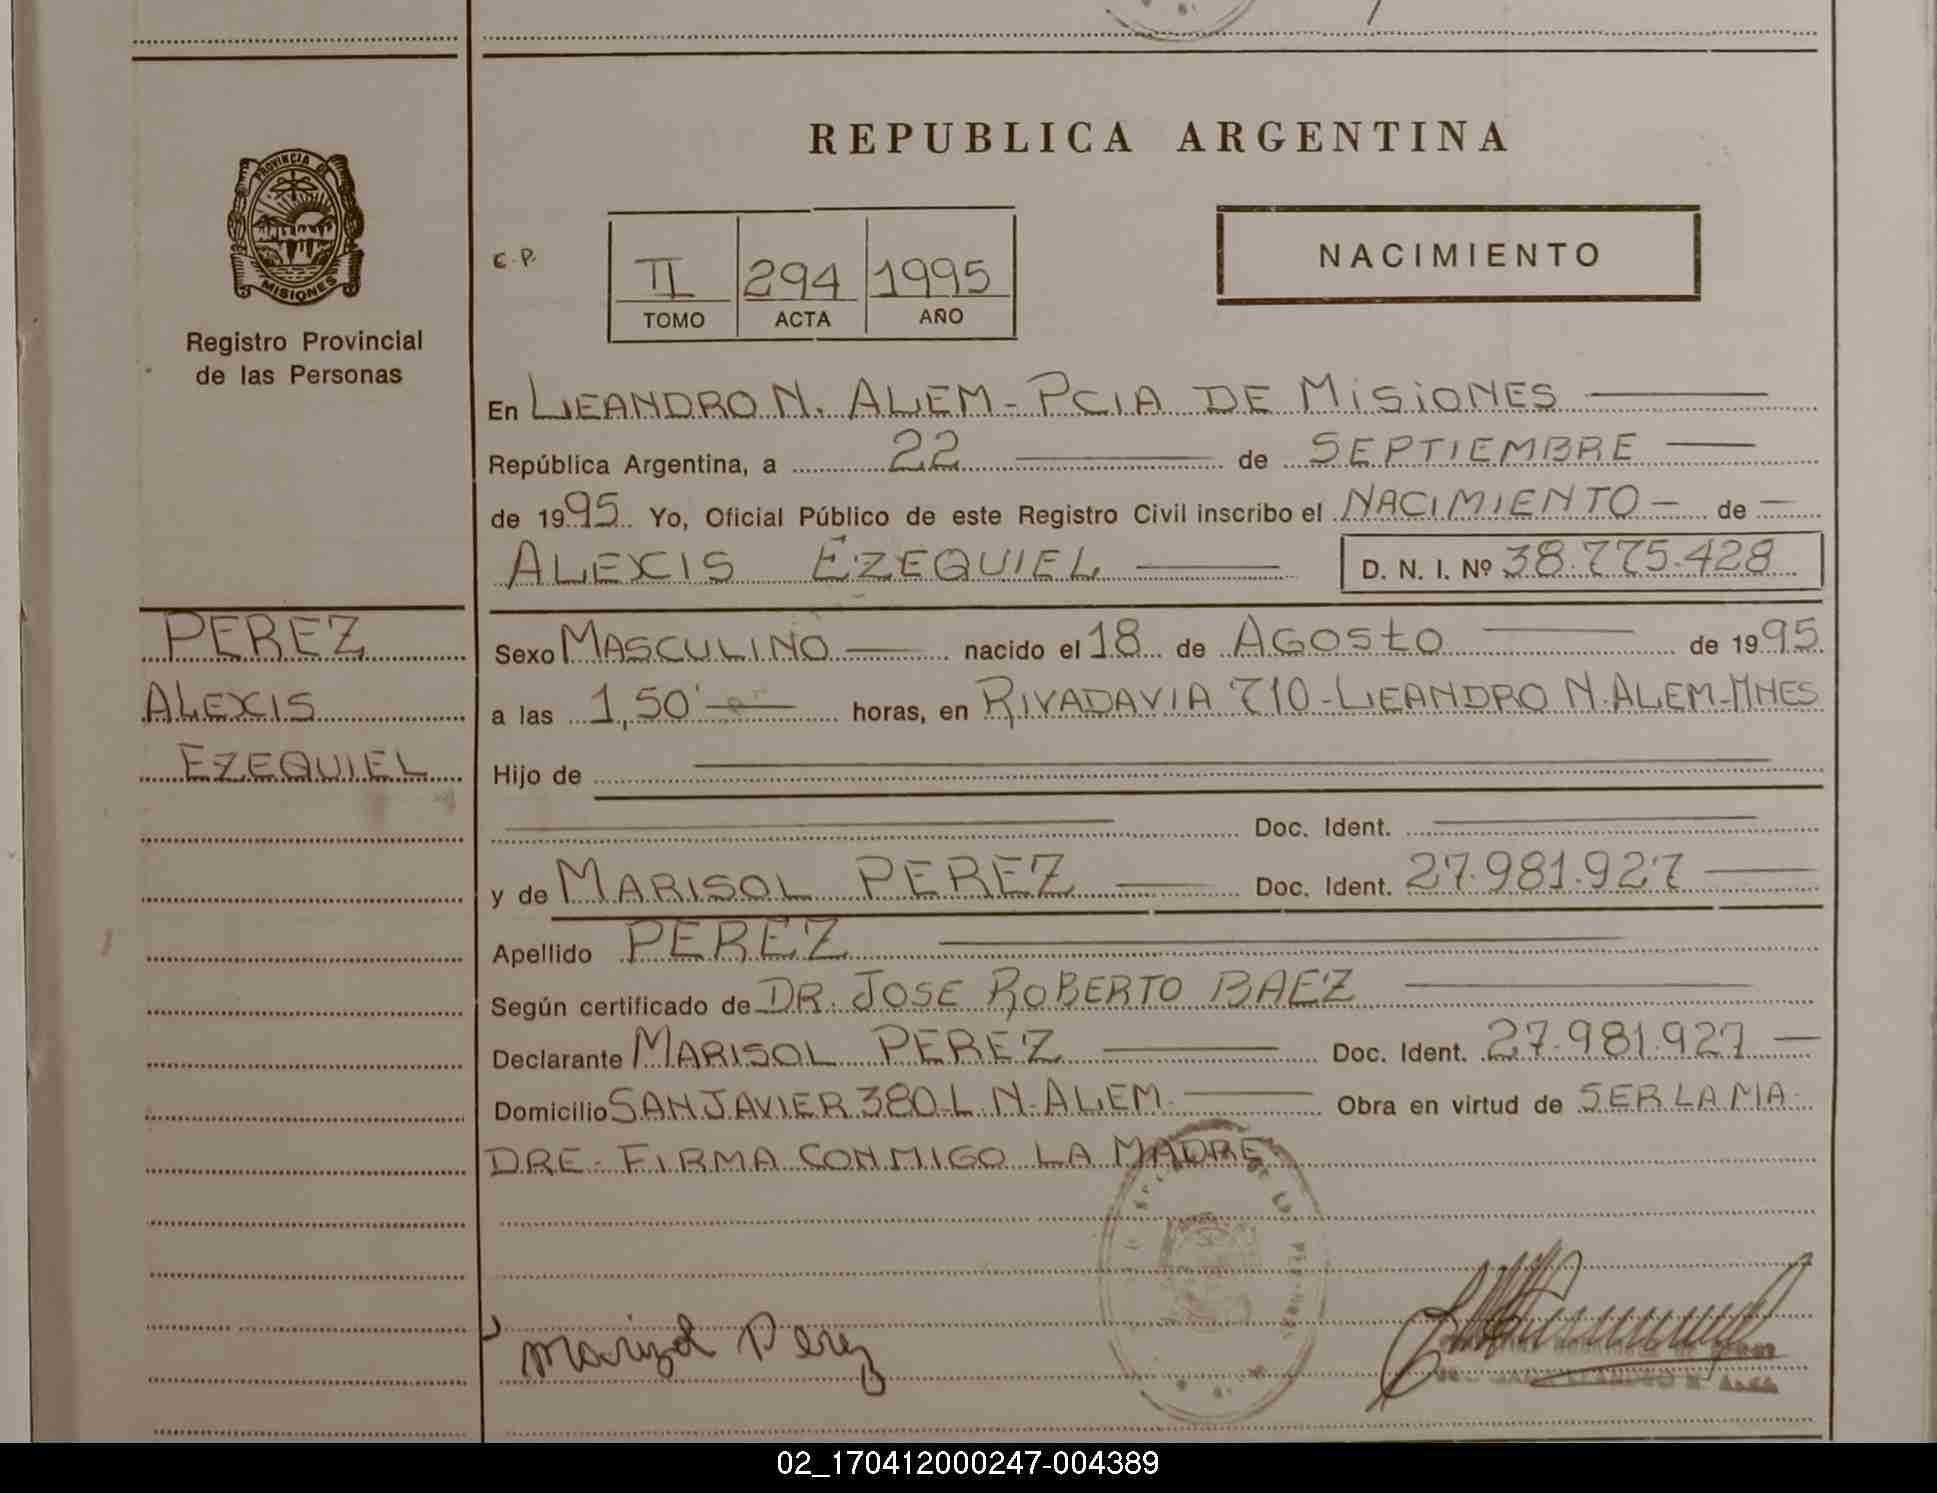 REPUBLICA ARGENTINA
PROVINCIA DE
MISIONES
Registro Provincial
de las Personas
C.P.
II 294 1995
TOMO ACTA AÑO
NACIMIENTO
En LEANDRO N. ALEM - PCIA DE MISIONES
República Argentina, a 22 de SEPTIEMBRE
de 1995 Yo, Oficial Público de este Registro Civil inscribo el NACIMIENTO - de -
ALEXIS EZEQUIEL D. N. I. Nº 38.775.428
PEREZ
ALEXIS
EZEQUIEL
Sexo MASCULINO nacido el 18 de AGOSTO de 1995
a las 1,50' horas, en RIVADAVIA 710 - LEANDRO N. ALEM - MNES
Hijo de
Doc. Ident.
y de MARISOL PEREZ Doc. Ident. 27.981.927
Apellido PEREZ
Según certificado de DR. JOSE ROBERTO BAEZ
Declarante MARISOL PEREZ Doc. Ident. 27.981.927 -
Domicilio SAN JAVIER 380 - L. N. ALEM. Obra en virtud de SER LA MA-
DRE - FIRMA CONMIGO LA MADRE
Perez
02_170412000247-004389